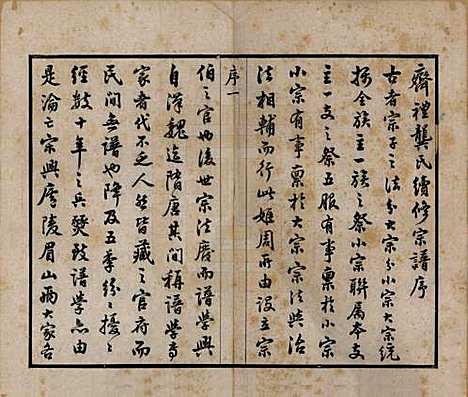 齊禮龔氏續修宗譜序
古者宗子之法分大宗分小宗大宗統
攝全族主一族之祭小宗聯属本支
主一支之祭五服有事稟於小宗
小宗有事稟於大宗宗法與治
法相輔而行此姬周所由設立宗
序一
伯之官也後世宗法廢而譜學興
自漢魏迄隋唐其間稱譜學專
家者代不乏人然皆藏之官府而
民間無譜也降及五季紛之擾之
經數十年之兵燹致譜學亦由
是淪亡宋興廬陵眉山兩大家各